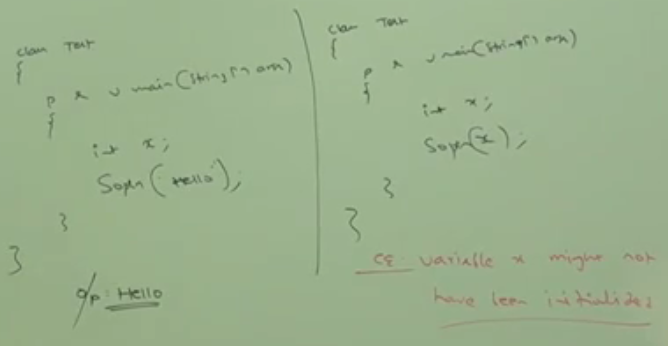 class Test
{
p s v main(String[] args)
{
int x;
Sopln("Hello");
}
}
o/p: Hello
class Test
{
p s v main(String[] args)
{
int x;
Sopln(x);
}
}
CE: variable x might not
have been initialized